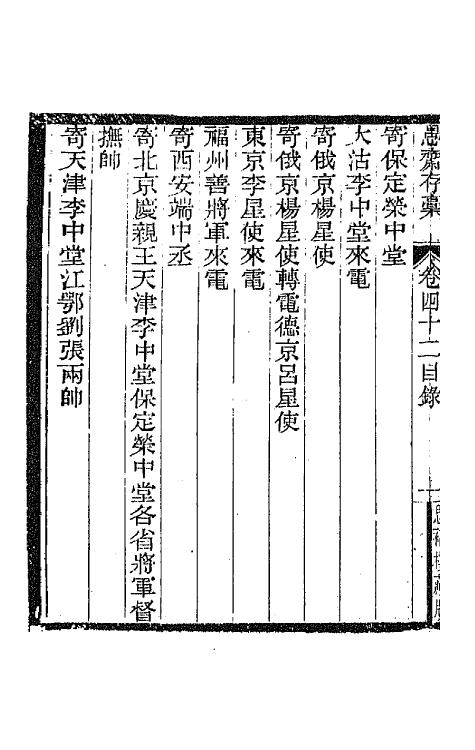 愚齋存稾 卷四十二目錄
寄保定榮中堂
大沽李中堂來電
寄俄京楊星使
寄俄京楊星使轉電德京呂星使
東京李星使來電
福州善將軍來電
寄西安端中丞
寄北京慶親王天津李中堂保定榮中堂各省將軍督
撫帥
寄天津李中堂江鄂劉張兩帥